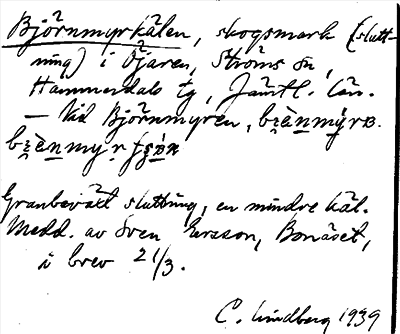 Björnmyrkälen, skogsmark (slutt-
ning) i Öjaren, Ströms sn,
Hammerdals tg, Jämtl. län.
— Vid Björnmyren,
Granbeväxt sluttning, en mindre käl.
Medd. av Sven Ersson, Bonäset,
i brev 21/3.
C. Lindberg 1939